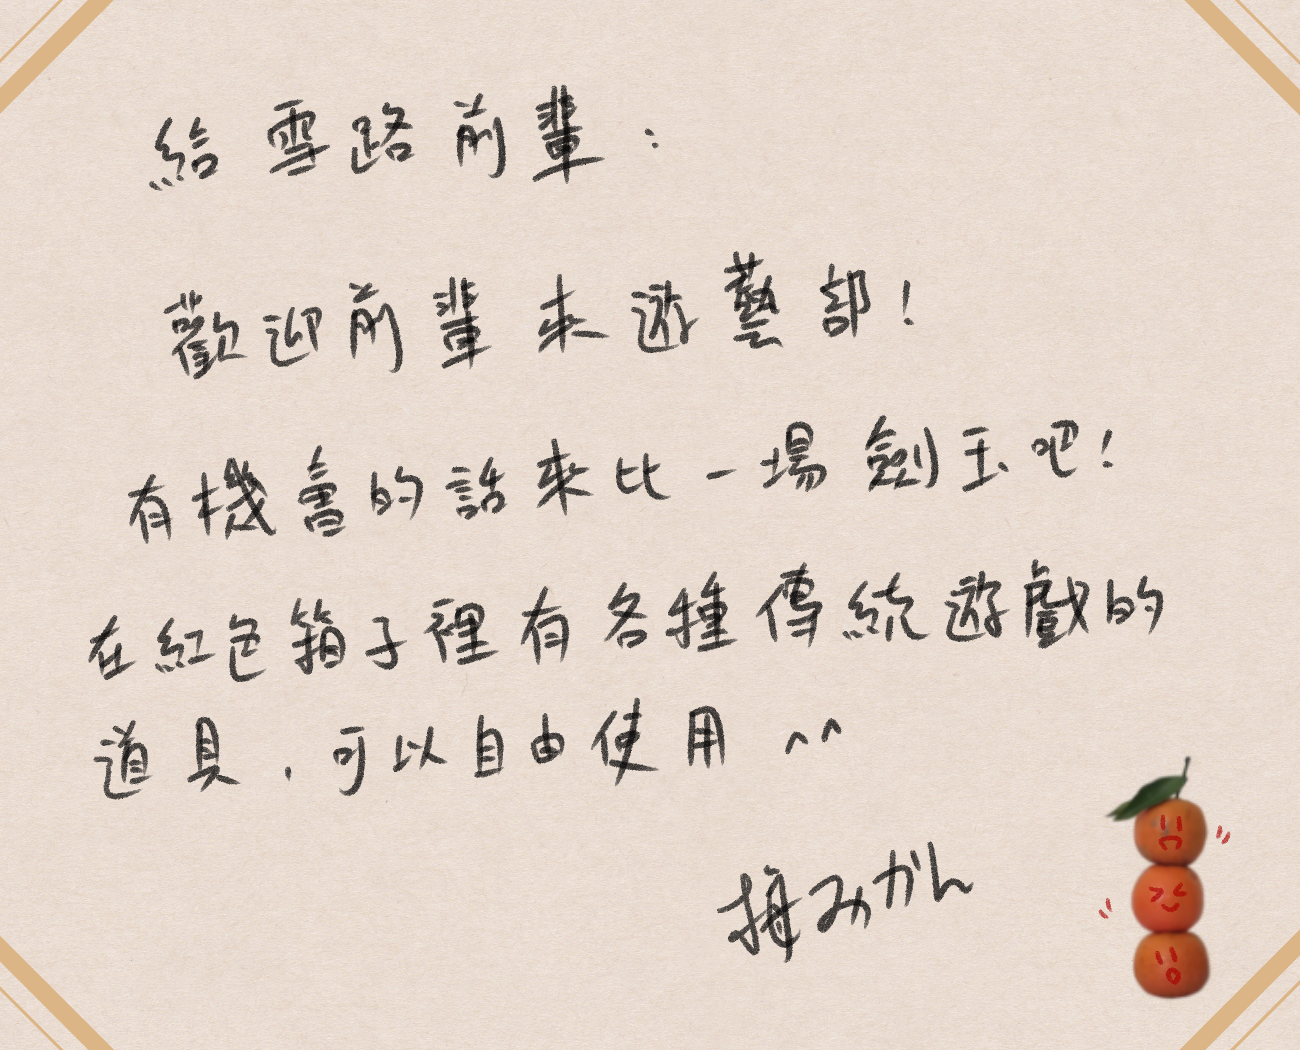 給 雪路前輩：
歡迎前輩來遊藝部！
有機會的話來比一場劍玉吧！
在紅色箱子裡有各種傳統遊戲的
道具，可以自由使用 ^^
梅みかん